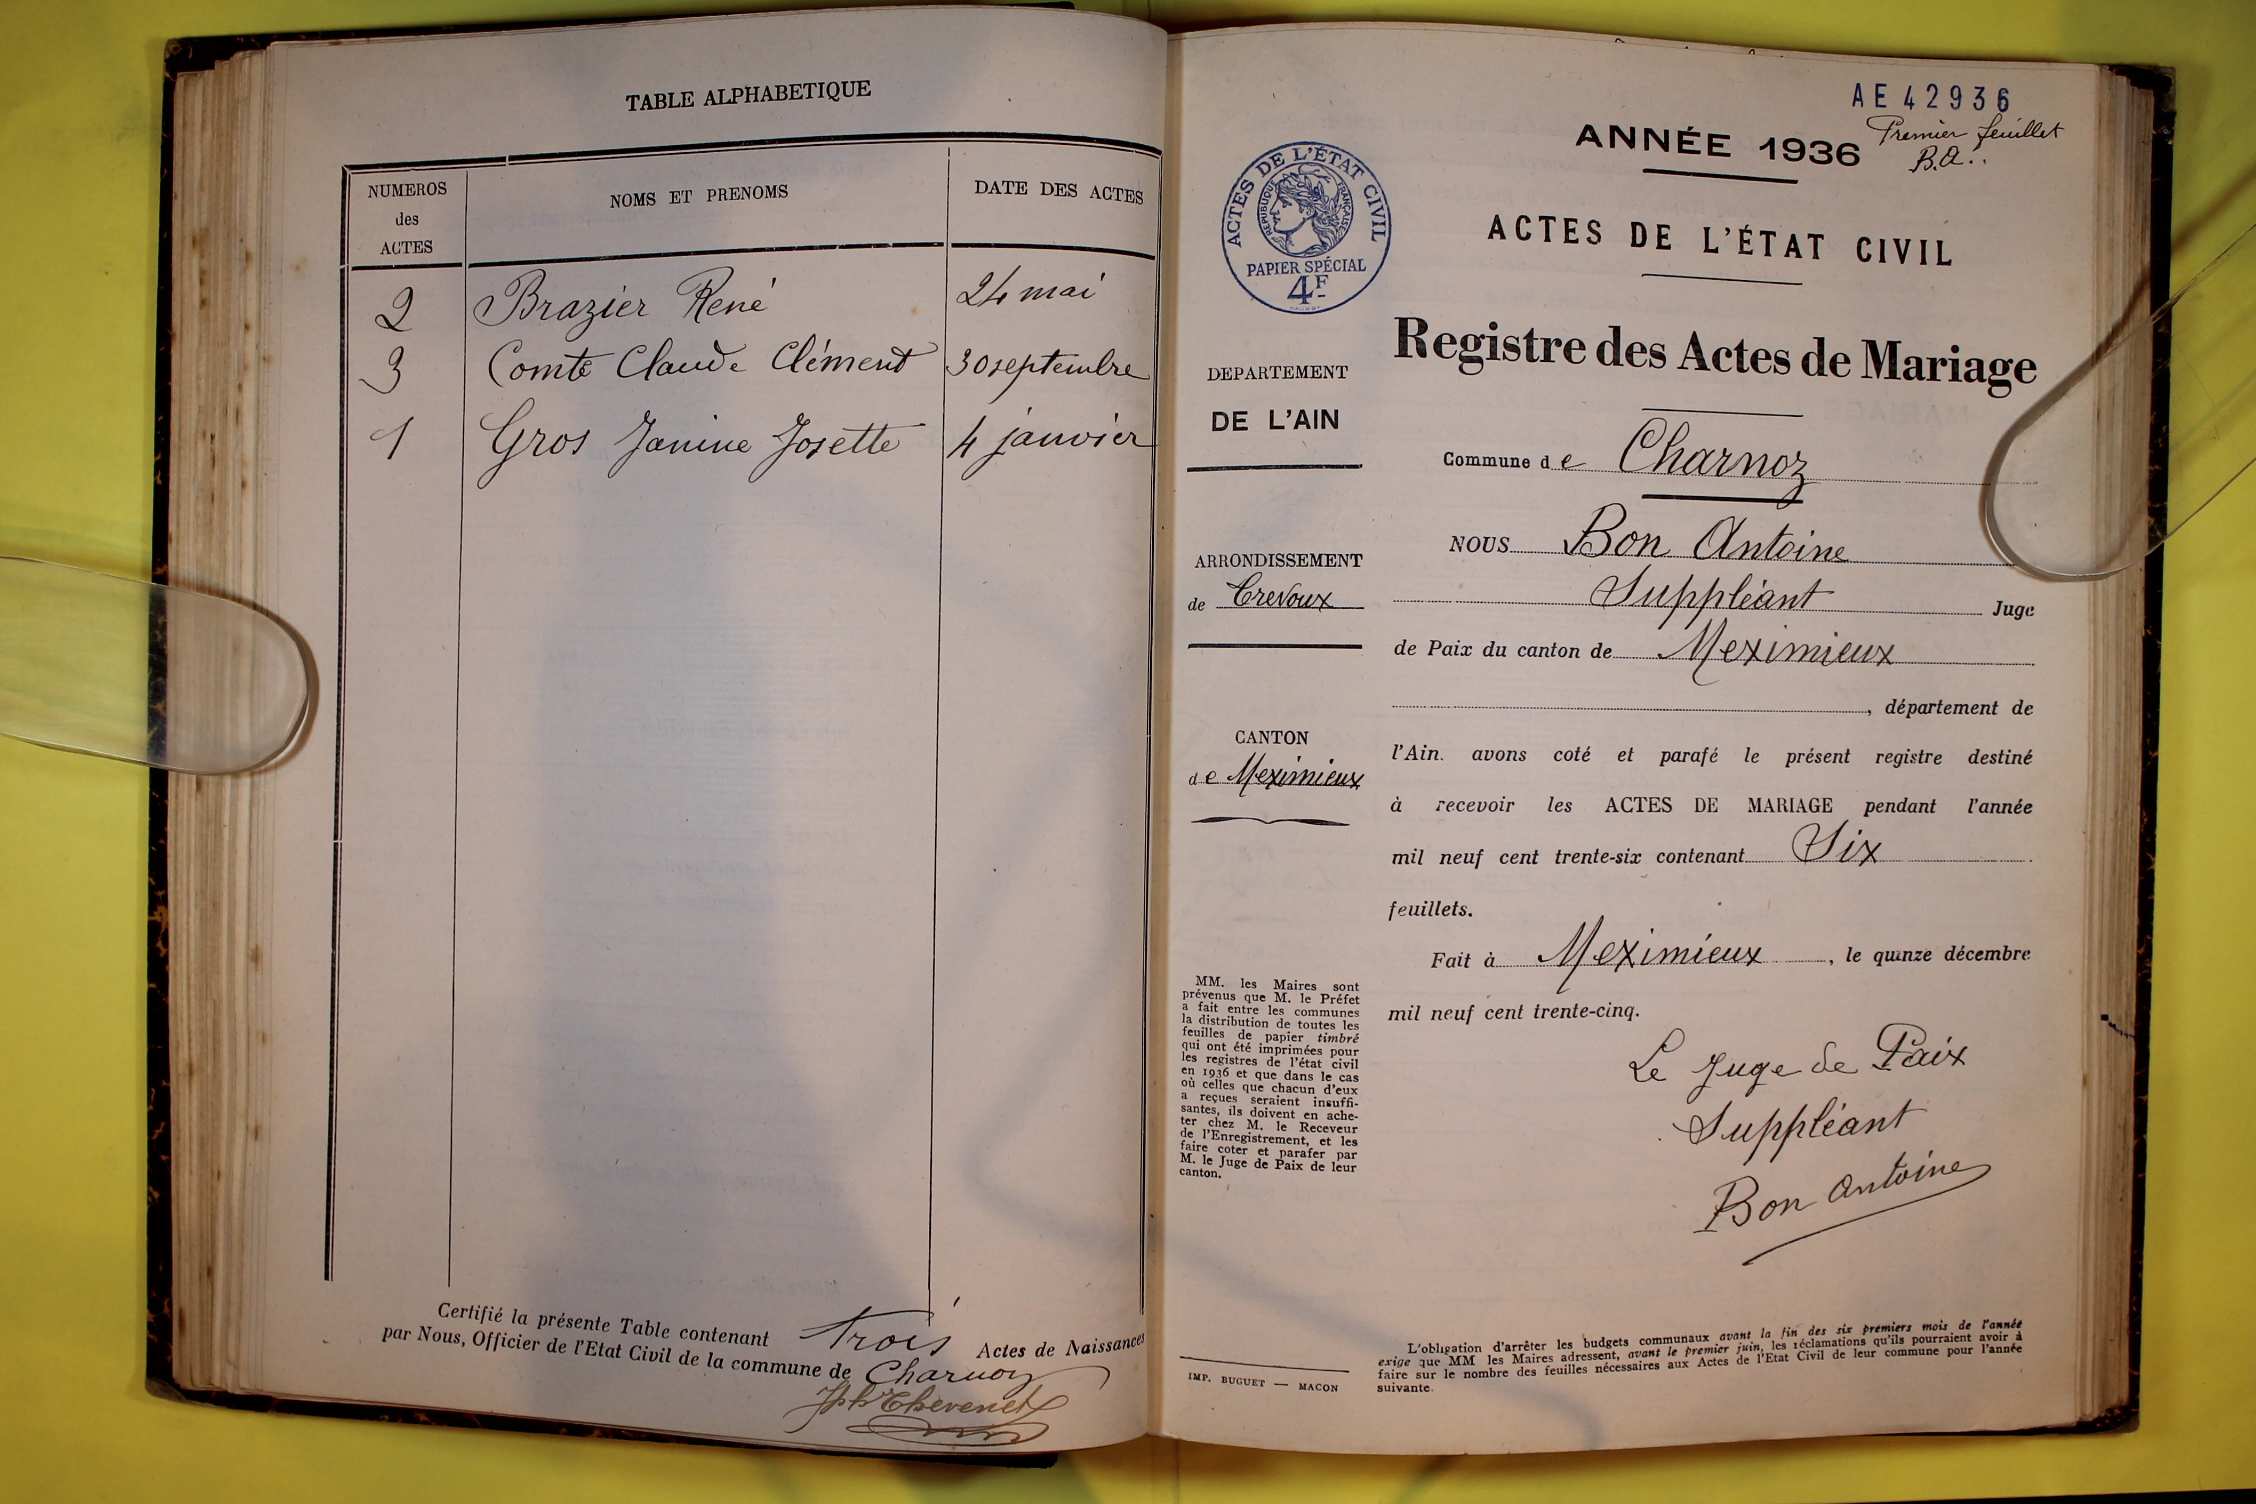 TABLE ALPHABETIQUE
NUMEROS
des
ACTES
NOMS ET PRENOMS
DATE DES ACTES
2 Brazier René 24 mai
3 Comte Claude Clément 30 septembre
1 Gros Janine Josette 4 janvier
Certifié la présente Table contenant trois Actes de Naissances
par Nous, Officier de l'Etat Civil de la commune de Charnoz
Jph Thevenet
AE 42936
Premier feuillet
B.A.
ANNÉE 1936
ACTES DE L'ÉTAT CIVIL
RÉPUBLIQUE FRANÇAISE
PAPIER SPÉCIAL
4F
ACTES DE L'ÉTAT CIVIL
Registre des Actes de Mariage
DEPARTEMENT
DE L'AIN
ARRONDISSEMENT
de Trevoux
CANTON
de Meximieux
MM. les Maires sont
prévenus que M. le Préfet
a fait entre les communes
la distribution de toutes les
feuilles de papier timbré
qui ont été imprimées pour
les registres de l'état civil
en 1936 et que dans le cas
où celles que chacun d'eux
a reçues seraient insuffi-
santes, ils doivent en ache-
ter chez M. le Receveur
de l'Enregistrement, et les
faire coter et parafer par
M. le Juge de Paix de leur
canton.
IMP. BUGUET — MACON
Commune de Charnoz
NOUS Bon Antoine
Suppléant Juge
de Paix du canton de Meximieux
, département de
l'Ain. avons coté et parafé le présent registre destiné
à recevoir les ACTES DE MARIAGE pendant l'année
mil neuf cent trente-six contenant Six
feuillets.
Fait à Meximieux, le quinze décembre
mil neuf cent trente-cinq.
Le Juge de Paix
Suppléant
Bon Antoine
L'obligation d'arrêter les budgets communaux avant la fin des six premiers mois de l'année
exige que MM les Maires adressent, avant le premier juin, les réclamations qu'ils pourraient avoir à
faire sur le nombre des feuilles nécessaires aux Actes de l'Etat Civil de leur commune pour l'année
suivante.